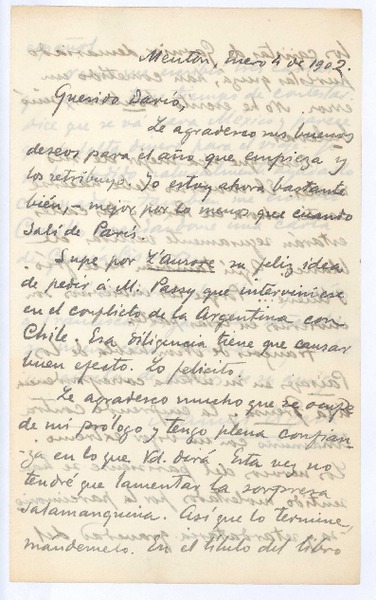 Mentón, enero 4 de 1902.
Querido Darío,
Le agradezco sus buenos
deseos para el año que empieza y
los retribuyo. Yo estoy ahora bastante
bién, – mejor por lo menos que cuando
salí de París.
Supe por L'Aurore su feliz idea
de pedir á M. Passy que interviniese
en el conflicto de la Argentina con
Chile. Esa diligencia tiene que causar
buen efecto. Lo felicito.
Le agradezco mucho que se ocupe
de mi prólogo y tengo plena confian-
za en lo que Vd. dirá. Esta vez no
tendré que lamentar la sorpresa
salamanquina. Así que lo termine,
mandemelo. En el título del libro